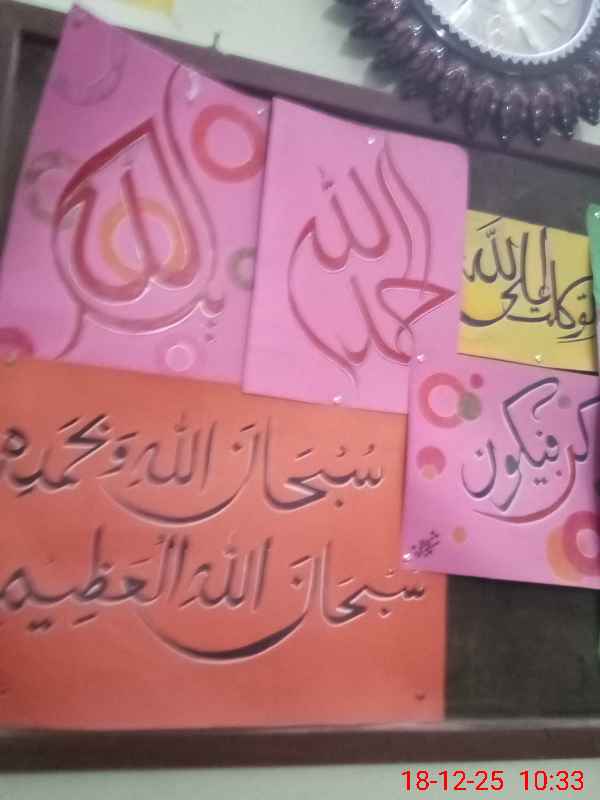 الله
الحمد لله
توكلت على اللَّه
كن فيكون
سُبْحَانَ اللهِ وَبِحَمْدِهِ
سُبْحَانَ اللهِ الْعَظِيم
18-12-25 10:33